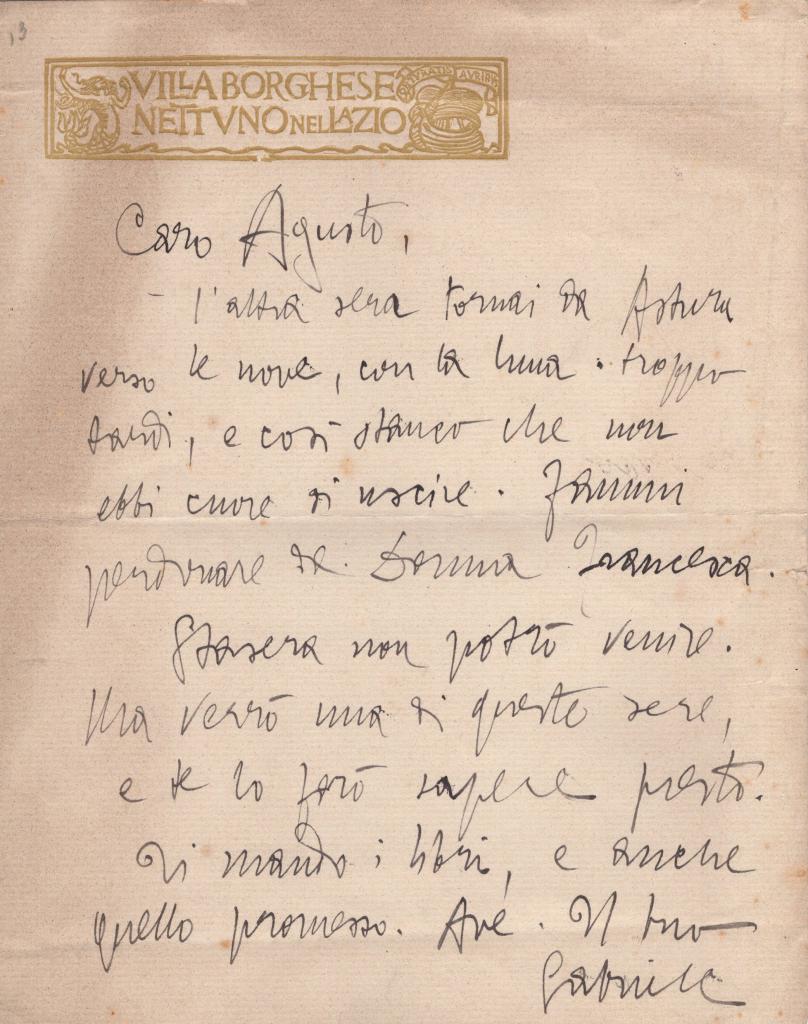 13
VILLA BORGHESE
NETTVNO NEL LAZIO
Caro Agusto,
– l'altra sera tornai da Astura
verso le nove, con la luna. troppo
tardi, e così stanco che non
ebbi cuore di uscire. Fammi
perdonare da Donna Francesca.
Stasera non potrò venire.
Ma verrò una di queste sere,
e te lo farò sapere presto.
Ti mando i libri, e anche
quello promesso. Ave. Il tuo
Gabriele